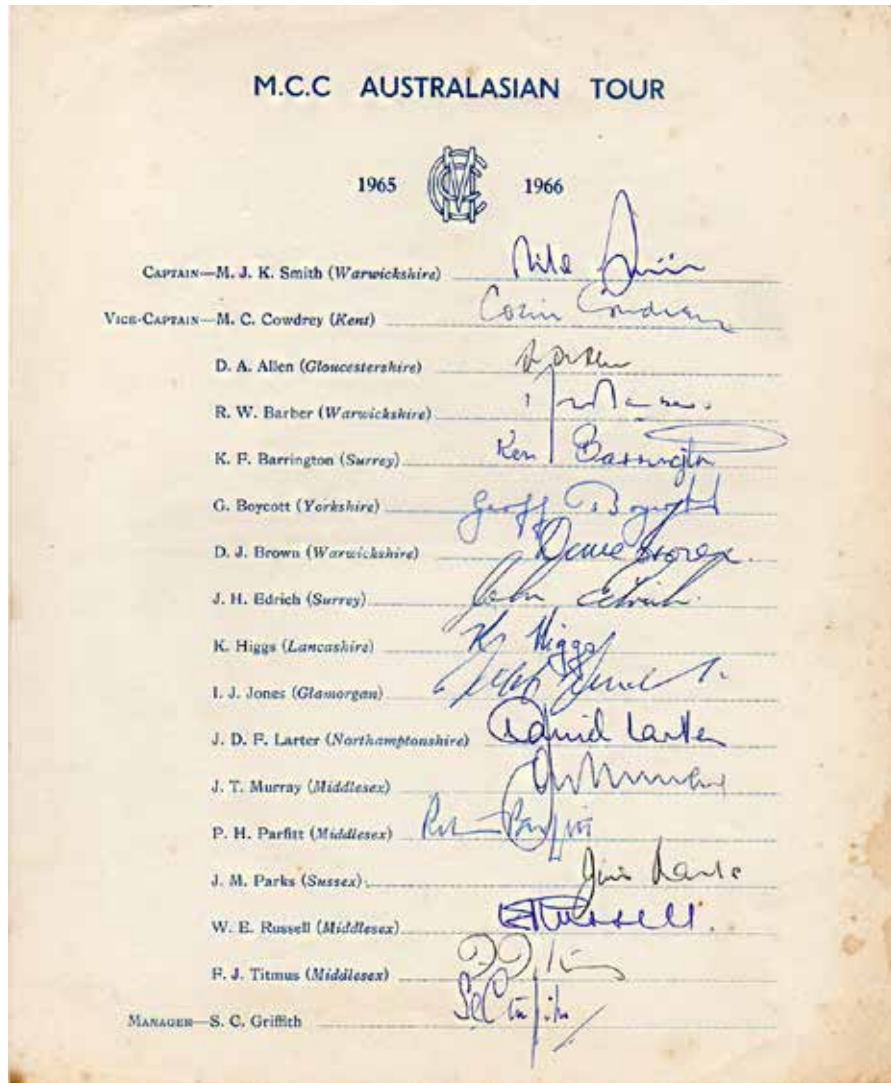 M.C.C AUSTRALASIAN TOUR
1965 MCC 1966
CAPTAIN—M. J. K. Smith (Warwickshire) Mike Smith
VICE-CAPTAIN—M. C. Cowdrey (Kent) Colin Cowdrey
D. A. Allen (Gloucestershire)
R. W. Barber (Warwickshire)
K. F. Barrington (Surrey) Ken Barrington
G. Boycott (Yorkshire) Geoff Boycott
D. J. Brown (Warwickshire) Dave Brown
J. H. Edrich (Surrey) John Edrich
K. Higgs (Lancashire) Ken Higgs
I. J. Jones (Glamorgan) Jeff Jones
J. D. F. Larter (Northamptonshire) David Larter
J. T. Murray (Middlesex)
P. H. Parfitt (Middlesex) Peter Parfitt
J. M. Parks (Sussex) Jim Parks
W. E. Russell (Middlesex) WE Russell
F. J. Titmus (Middlesex)
MANAGER—S. C. Griffith SC Griffith